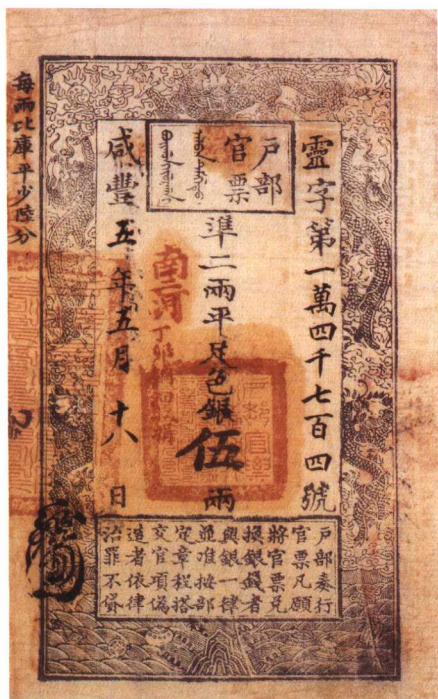 靈字第一萬四千七百四號
戶部
官票
準二兩平足色銀伍兩
南河
咸豐五年五月十八日
每兩比庫平少陸分
戶部奏行
官票凡願
將官票兌
換銀錢者
與銀一律
並准按部
定章程搭
交官項偽
造者依律
治罪不貸